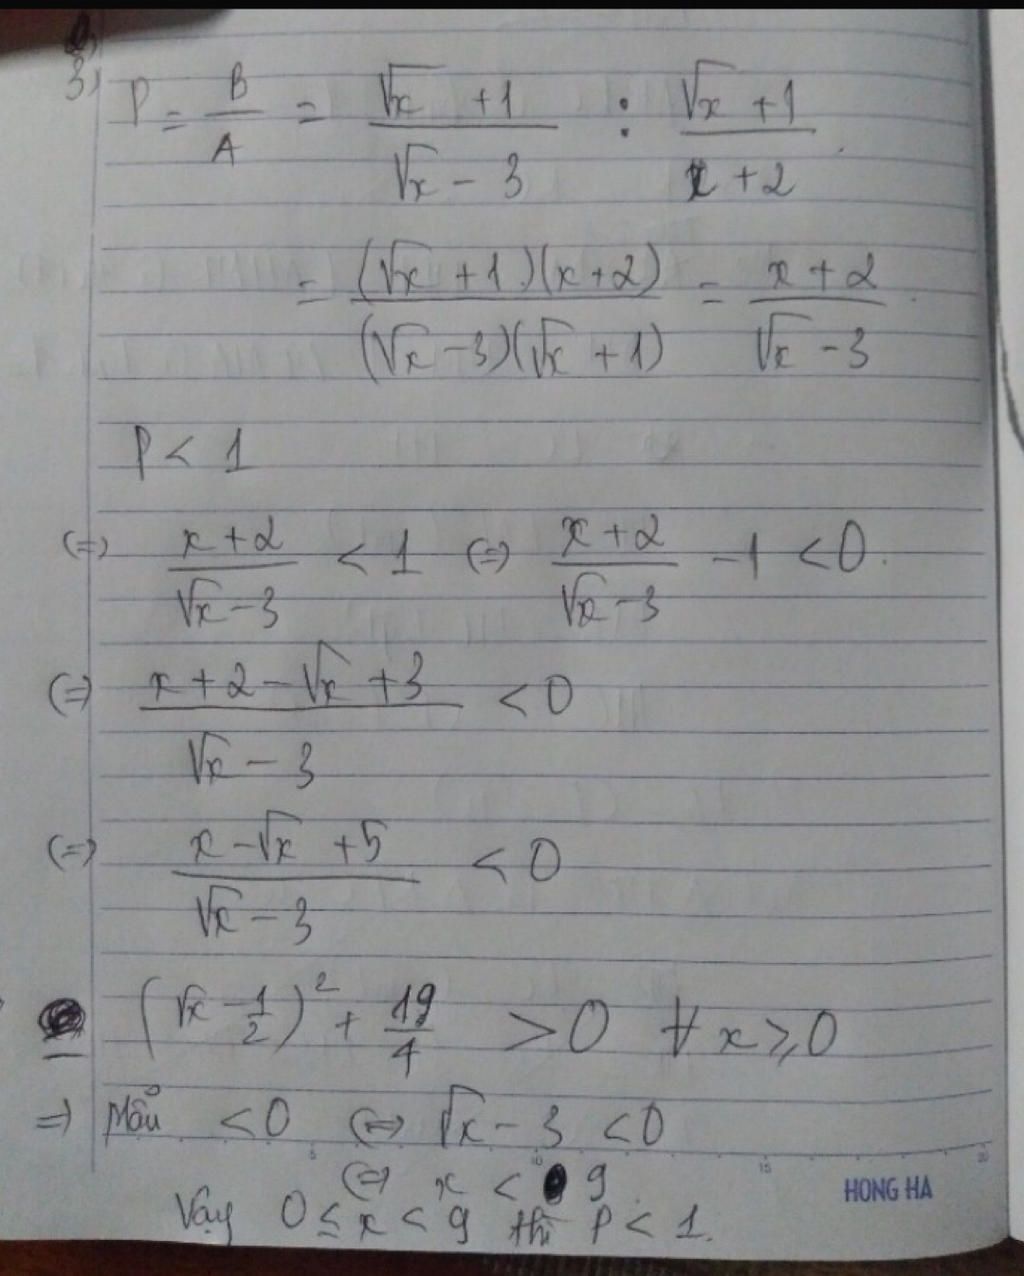 3) P = B/A = (√x + 1)/(√x - 3) : (√x + 1)/(x + 2)
= (√x + 1)(x + 2)/(√x - 3)(√x + 1) = (x + 2)/(√x - 3)
P < 1
(=) (x + 2)/(√x - 3) < 1 (=) (x + 2)/(√x - 3) - 1 < 0
(=) (x + 2 - √x + 3)/(√x - 3) < 0
(=) (x - √x + 5)/(√x - 3) < 0
(√x - 1/2)² + 19/4 > 0 ∀ x ≥ 0
=) Mẫu < 0 (=) √x - 3 < 0
(=) x < 9
Vậy 0 ≤ x < 9 thì P < 1.
5 10 15 20
HONG HA